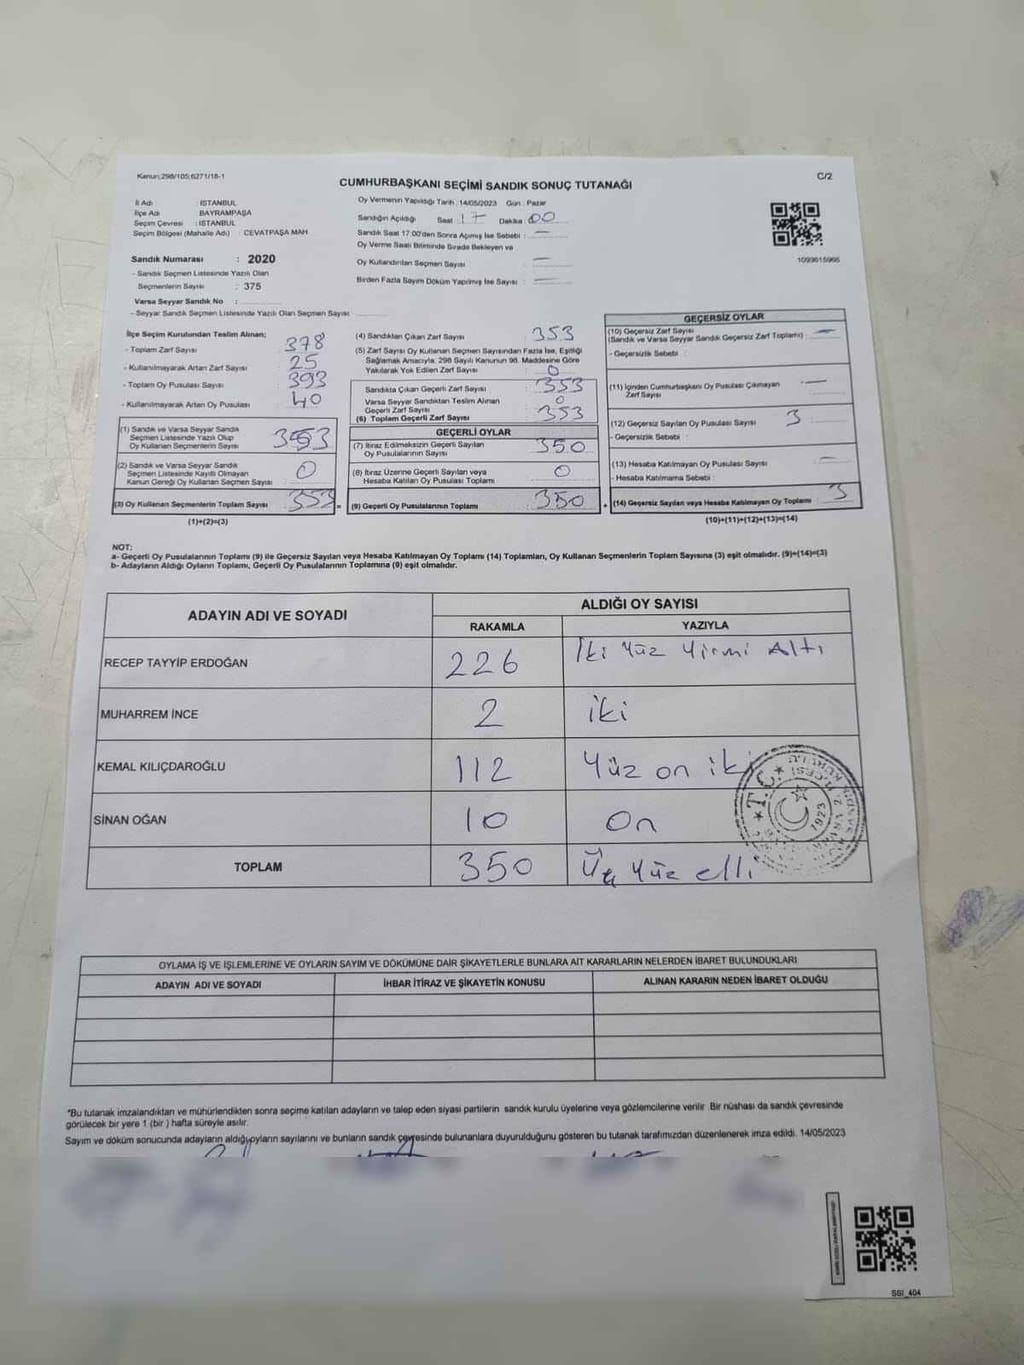 Kanun:298/105;6271/18-1
C/2
CUMHURBAŞKANI SEÇİMİ SANDIK SONUÇ TUTANAĞI
İl Adı : İSTANBUL
İlçe Adı BAYRAMPAŞA
Seçim Çevresi : İSTANBUL
Seçim Bölgesi (Mahalle Adı) : CEVATPAŞA MAH
Sandık Numarası : 2020
- Sandık Seçmen Listesinde Yazılı Olan
Seçmenlerin Sayısı : 375
Varsa Seyyar Sandık No :
- Seyyar Sandık Seçmen Listesinde Yazılı Olan Seçmen Sayısı
Oy Vermenin Yapıldığı Tarih : 14/05/2023 Gün : Pazar
Sandığın Açıldığı Saat 17 Dakika : 00
Sandık Saat 17:00'den Sonra Açılmış İse Sebebi : —
Oy Verme Saati Bitiminde Sırada Bekleyen ve
Oy Kullandırılan Seçmen Sayısı —
Birden Fazla Sayım Döküm Yapılmış İse Sayısı : —
1099615966
İlçe Seçim Kurulundan Teslim Alınan;
- Toplam Zarf Sayısı 378
- Kullanılmayarak Artan Zarf Sayısı 25
- Toplam Oy Pusulası Sayısı 393
- Kullanılmayarak Artan Oy Pusulası 40
(1) Sandık ve Varsa Seyyar Sandık
Seçmen Listesinde Yazılı Olup
Oy Kullanan Seçmenlerin Sayısı 353
(2) Sandık ve Varsa Seyyar Sandık
Seçmen Listesinde Kayıtlı Olmayan
Kanun Gereği Oy Kullanan Seçmen Sayısı 0
(3) Oy Kullanan Seçmenlerin Toplam Sayısı 353 =
(1)+(2)=(3)
(4) Sandıktan Çıkan Zarf Sayısı 353
(5) Zarf Sayısı Oy Kullanan Seçmen Sayısından Fazla İse, Eşitliği
Sağlamak Amacıyla, 298 Sayılı Kanunun 98. Maddesine Göre
Yakılarak Yok Edilen Zarf Sayısı : 0
Sandıkta Çıkan Geçerli Zarf Sayısı : 353
Varsa Seyyar Sandıktan Teslim Alınan
Geçerli Zarf Sayısı 0
(6) Toplam Geçerli Zarf Sayısı 353
GEÇERLİ OYLAR
(7) İtiraz Edilmeksizin Geçerli Sayılan
Oy Pusulalarının Sayısı 350
(8) İtiraz Üzerine Geçerli Sayılan veya
Hesaba Katılan Oy Pusulası Toplamı 0
(9) Geçerli Oy Pusulalarının Toplamı 350 +
GEÇERSİZ OYLAR
(10) Geçersiz Zarf Sayısı
(Sandık ve Varsa Seyyar Sandık Geçersiz Zarf Toplamı) : —
- Geçersizlik Sebebi :
(11) İçinden Cumhurbaşkanı Oy Pusulası Çıkmayan
Zarf Sayısı —
(12) Geçersiz Sayılan Oy Pusulası Sayısı 3
- Geçersizlik Sebebi :
(13) Hesaba Katılmayan Oy Pusulası Sayısı —
- Hesaba Katılmama Sebebi :
(14) Geçersiz Sayılan veya Hesaba Katılmayan Oy Toplamı 3
(10)+(11)+(12)+(13)=(14)
NOT:
a- Geçerli Oy Pusulalarının Toplamı (9) ile Geçersiz Sayılan veya Hesaba Katılmayan Oy Toplamı (14) Toplamları, Oy Kullanan Seçmenlerin Toplam Sayısına (3) eşit olmalıdır. (9)+(14)=(3)
b- Adayların Aldığı Oyların Toplamı, Geçerli Oy Pusulalarının Toplamına (9) eşit olmalıdır.
ADAYIN ADI VE SOYADI
ALDIĞI OY SAYISI
RAKAMLA YAZIYLA
RECEP TAYYİP ERDOĞAN 226 İki Yüz Yirmi Altı
MUHARREM İNCE 2 iki
KEMAL KILIÇDAROĞLU 112 Yüz on iki
SİNAN OĞAN 10 On
TOPLAM 350 Üç Yüz elli
T.C.
1923
OYLAMA İŞ VE İŞLEMLERİNE VE OYLARIN SAYIM VE DÖKÜMÜNE DAİR ŞİKAYETLERLE BUNLARA AİT KARARLARIN NELERDEN İBARET BULUNDUKLARI
ADAYIN ADI VE SOYADI İHBAR İTİRAZ VE ŞİKAYETİN KONUSU ALINAN KARARIN NEDEN İBARET OLDUĞU
*Bu tutanak imzalandıktan ve mühürlendikten sonra seçime katılan adayların ve talep eden siyasi partilerin sandık kurulu üyelerine veya gözlemcilerine verilir. Bir nüshası da sandık çevresinde
görülecek bir yere 1 (bir ) hafta süreyle asılır.
Sayım ve döküm sonucunda adayların aldığı oyların sayılarını ve bunların sandık çevresinde bulunanlara duyurulduğunu gösteren bu tutanak tarafımızdan düzenlenerek imza edildi. 14/05/2023
SSI_404